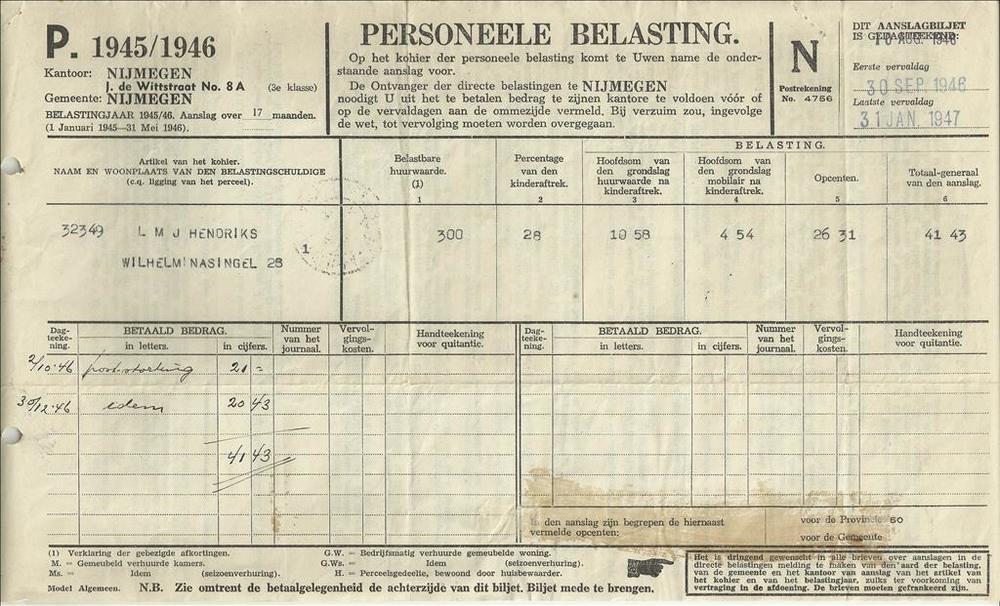 P. 1945/1946
Kantoor: NIJMEGEN
J. de Wittstraat No. 8A (3e klasse)
Gemeente: NIJMEGEN
BELASTINGJAAR 1945/46. Aanslag over 17 maanden.
(1 Januari 1945—31 Mei 1946).
PERSONEELE BELASTING.
Op het kohier der personeele belasting komt te Uwen name de onder-
staande aanslag voor.
De Ontvanger der directe belastingen te NIJMEGEN
noodigt U uit het te betalen bedrag te zijnen kantore te voldoen vóór of
op de vervaldagen aan de ommezijde vermeld. Bij verzuim zou, ingevolge
de wet, tot vervolging moeten worden overgegaan.
N
Postrekening
No. 4756
DIT AANSLAGBILJET
IS GEDAGTEEKEND:
10 AUG. 1946
Eerste vervaldag
30 SEP. 1946
Laatste vervaldag
31 JAN. 1947
Artikel van het kohier.
NAAM EN WOONPLAATS VAN DEN BELASTINGSCHULDIGE
(c.q. ligging van het perceel).
Belastbare
huurwaarde.
(1)
1
Percentage
van den
kinderaftrek.
2
BELASTING.
Hoofdsom van
den grondslag
huurwaarde na
kinderaftrek.
3
Hoofdsom van
den grondslag
mobilair na
kinderaftrek.
4
Opcenten.
5
Totaal-generaal
van den aanslag.
6
32349 L M J HENDRIKS 300 28 10 58 4 54 26 31 41 43
1
WILHELMINASINGEL 28
Dag-
teeke-
ning.
BETAALD BEDRAG.
in letters. in cijfers.
Nummer
van het
journaal.
Vervol-
gings-
kosten.
Handteekening
voor quitantie.
Dag-
teeke-
ning.
BETAALD BEDRAG.
in letters. in cijfers.
Nummer
van het
journaal.
Vervol-
gings-
kosten.
Handteekening
voor quitantie.
2/10-46 poststorting 21 =
30/12-46 idem 20 43
41 43
In den aanslag zijn begrepen de hiernaast
vermelde opcenten:
voor de Provincie 60
voor de Gemeente
(1) Verklaring der gebezigde afkortingen.
M. = Gemeubeld verhuurde kamers.
Ms. = Idem (seizoenverhuring).
G.W. = Bedrijfsmatig verhuurde gemeubelde woning.
G.Ws. = Idem (seizoenverhuring).
H. = Perceelsgedeelte, bewoond door huisbewaarder.
Model Algemeen. N.B. Zie omtrent de betaalgelegenheid de achterzijde van dit biljet. Biljet mede te brengen.
Het is dringend gewenscht in alle brieven over aanslagen in de
directe belastingen melding te maken van den aard der belasting,
van de gemeente en het kantoor van aanslag van het artikel van
het kohier en van het belastingjaar, zulks ter voorkoming van
vertraging in de afdoening. De brieven moeten gefrankeerd zijn.